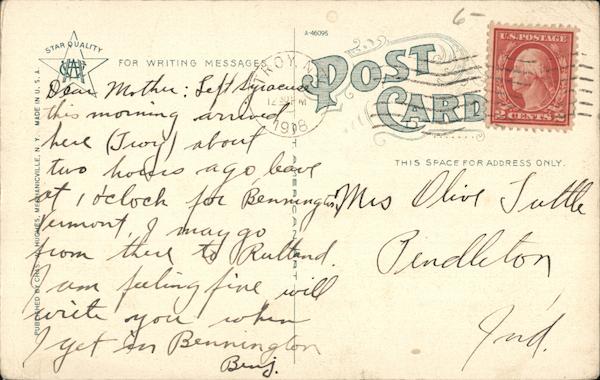 A-46095
6-
STAR QUALITY
FOR WRITING MESSAGES
POST
CARD
TROY, N
M
1918
U.S. POSTAGE
2 CENTS 2
THIS SPACE FOR ADDRESS ONLY.
MADE IN U.S.A.
PUBLISHED BY CHAS. W. HUGHES, MECHANICVILLE, N. Y.
Dear Mother: Left Syracuse
this morning arrived
here (Troy) about
two hours ago leave
at 1 o'clock for Bennington
Vermont, I may go
from there to Rutland.
I am feeling fine will
write you when
I get in Bennington
Benj.
Mrs Olive Tuttle
Pendleton,
Ind.